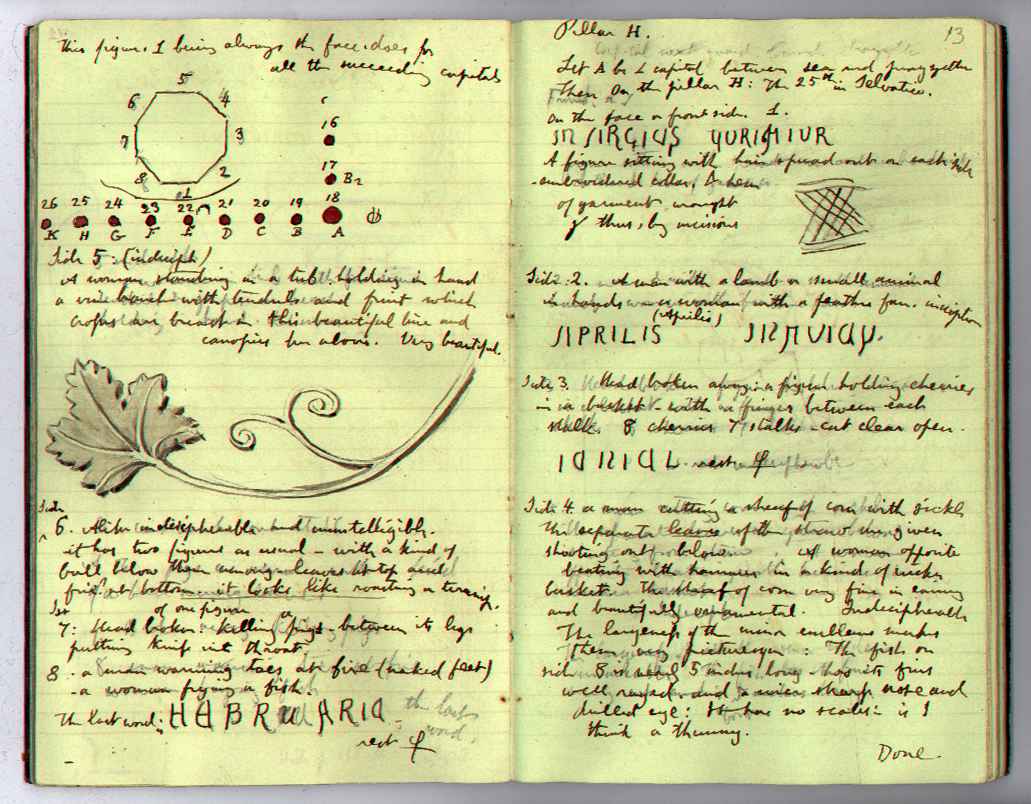 This figure. 1 being always the face: does for
all the succeeding capitals
5
6 4
7 3
8 2
1
16
17
B2
26 25 24 23 22 21 20 19 18
K H G F E D C B A
Side 5: (indeciph)
A woman standing in a tub. holding in hand
a vine branch with tendrils and fruit which
crosses her breast in this beautiful line and
canopies her above. Very beautiful.
Side
6. Alike indecipherable and unintelligible.
it has two figures as usual - with a kind of
ball below them waving leaves at top and
fire? at bottom - it looks like roasting a
of one figure
7: Head broken: killing a pig. between its legs
putting knife into throat.
8. a man warming toes at fire (naked feet)
- a woman frying a fish
The last word:
rest
the last
word,
Pillar H. 13
Let A be 1 capital between sea and
then On the pillar H: The 25th in Selvatico.
On the face or front side. 1.
A figure sitting with hair spread out on each side
embroidered collar, & hem
of garment wrought
thus, by incisions
Side. 2. A man with a lamb or small animal
in hands a woman with a feather fan. inscription
(Aprilis)
APRILIS
Side 3. Head broken away: a figure holding cherries
in a basket - with a finger between each
stalk. 8 cherries 7 stalks - cut clear open.
rest
Side 4. a man cutting a sheaf of corn with sickle
the separate leaves of the straw
shooting out below. A woman opposite
beating with hammer in a kind of
basket. The sheaf of corn very fine in
and beautifully ornamental. Indecipherable
The largeness of the minor emblems makes
them very picturesque: The fish on
side 8 is nearly 5 inches long - has its fins
well and a nice sharp nose and
drilled eye: It has no scales: is I
think a
Done.